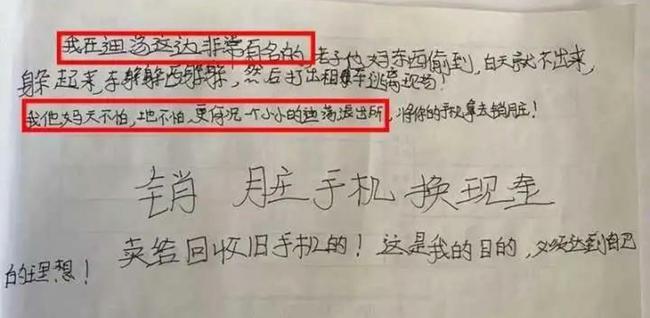 我在迪荡这边非常有名的，老子他妈东西偷到，白天就不出来，
躲起来，东躲躲西躲躲，然后打出租车逃离现场！
我他妈天不怕，地不怕，更何况一个小小的迪荡派出所，将你的手机拿去销脏！
销 脏手机换现金
卖给回收旧手机的！这是我的目的，必须达到自己
的理想！